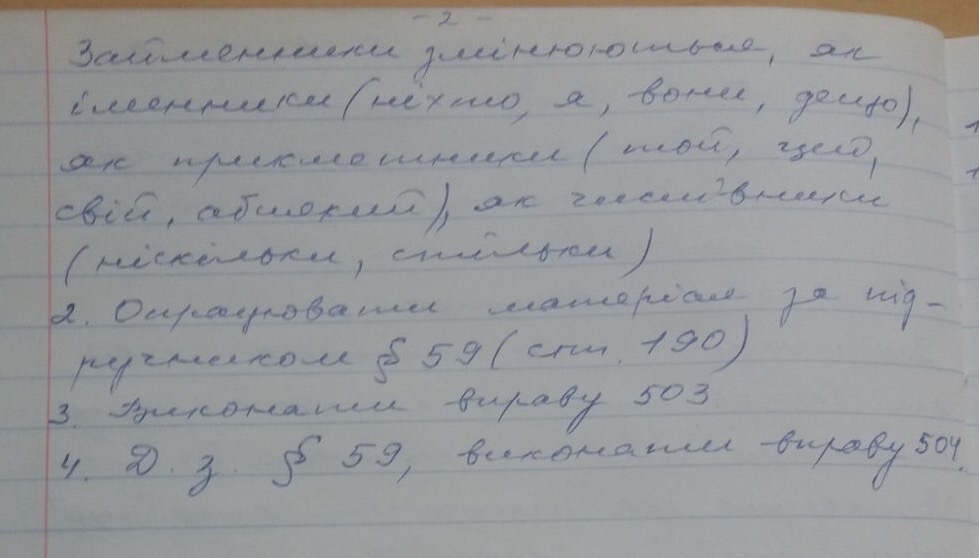 - 2 -
Займенники змінюються, як
іменники (ніхто, я, вони, дещо),
як прикметники (той, цей,
свій, абиякий), як числівники
(ніскільки, стільки)
2. Опрацювати матеріал за під-
ручником § 59 (ст. 190)
3. Виконати вправу 503
4. Д. з. § 59, виконати вправу 504.